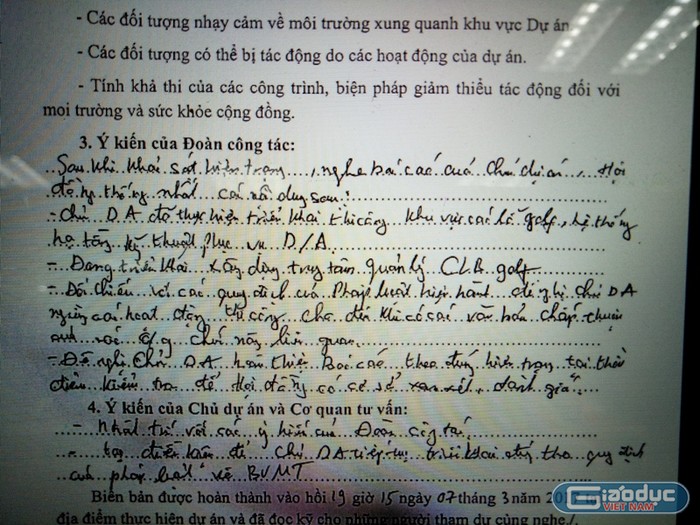 - Các đối tượng nhạy cảm về môi trường xung quanh khu vực Dự án
- Các đối tượng có thể bị tác động do các hoạt động của dự án.
- Tính khả thi của các công trình, biện pháp giảm thiểu tác động đối với
mọi trường và sức khỏe cộng đồng.
3. Ý kiến của Đoàn công tác:
Sau khi khảo sát hiện trạng, nghe báo cáo của Chủ dự án, Hội
đồng thống nhất các nội dung sau:
- Chủ D.A đã thực hiện triển khai thi công khu vực các lỗ golf, hệ thống
hạ tầng kỹ thuật phục vụ D/A
- Đang triển khai xây dựng trung tâm quản lý CLB golf
- Đối chiếu với các quy định của Pháp luật hiện hành đề nghị chủ DA
ngừng các hoạt động thi công cho đến khi có các văn bản chấp thuận
của các chức năng liên quan
- Đề nghị Chủ D.A hoàn thiện Báo cáo theo đúng hiện trạng tại thời
điểm kiểm tra để Hội đồng có cơ sở xem xét, đánh giá
4. Ý kiến của Chủ dự án và Cơ quan tư vấn:
- Nhất trí với các ý kiến của Đoàn công tác
- tạo điều kiện để Chủ DA tiếp tục triển khai đúng theo quy định
của pháp luật về BVMT
Biên bản được hoàn thành vào hồi 19 giờ 15 ngày 07 tháng 3 năm
địa điểm thực hiện dự án và đã đọc kỹ cho những người tham dự cùng nghe./.
Giáo dục
VIỆT NAM